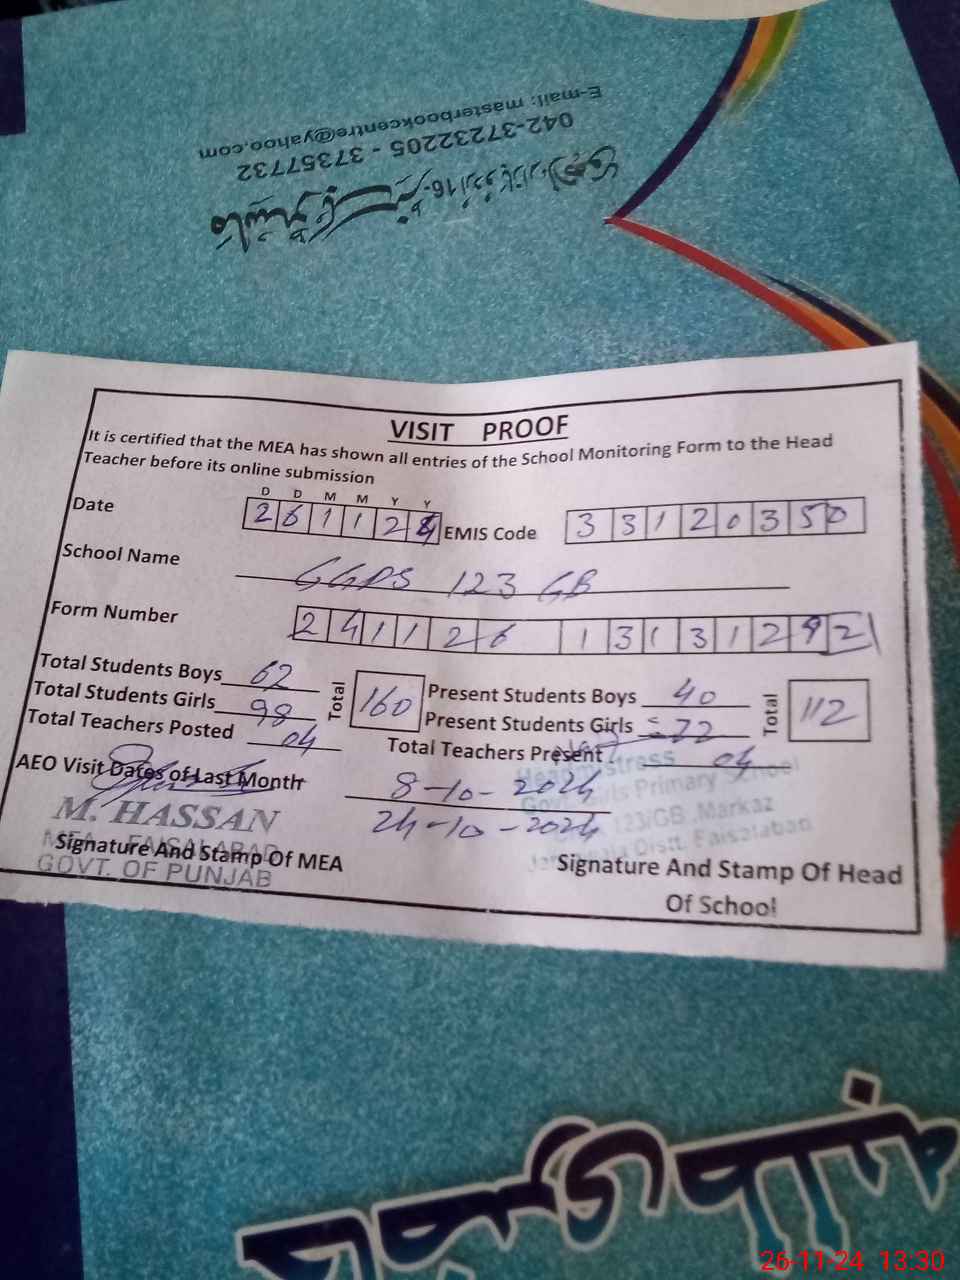 E-mail: masterbookcentre@yahoo.com
042-37232205 - 37357732
VISIT PROOF
It is certified that the MEA has shown all entries of the School Monitoring Form to the Head
Teacher before its online submission
D D M M Y Y
Date 2 6 1 1 2 4 EMIS Code 3 3 1 2 0 3 5 0
School Name GGPS 123 GB
Form Number 2 4 1 1 2 6 1 3 1 3 1 2 9 2
Total Students Boys 62 Present Students Boys 40
Total Students Girls 98 Total 160 Present Students Girls = 72 Total 112
Total Teachers Posted 04 Total Teachers Present 04
AEO Visit Dates of Last Month 8-10-2024
24-10-2024
M. HASSAN
MEA FAISALABAD
GOVT. OF PUNJAB
Signature And Stamp Of MEA
Headmistress
Govt. Girls Primary School
123/GB, Markaz
Distt. Faisalabad
Signature And Stamp Of Head
Of School
26-11-24 13:30